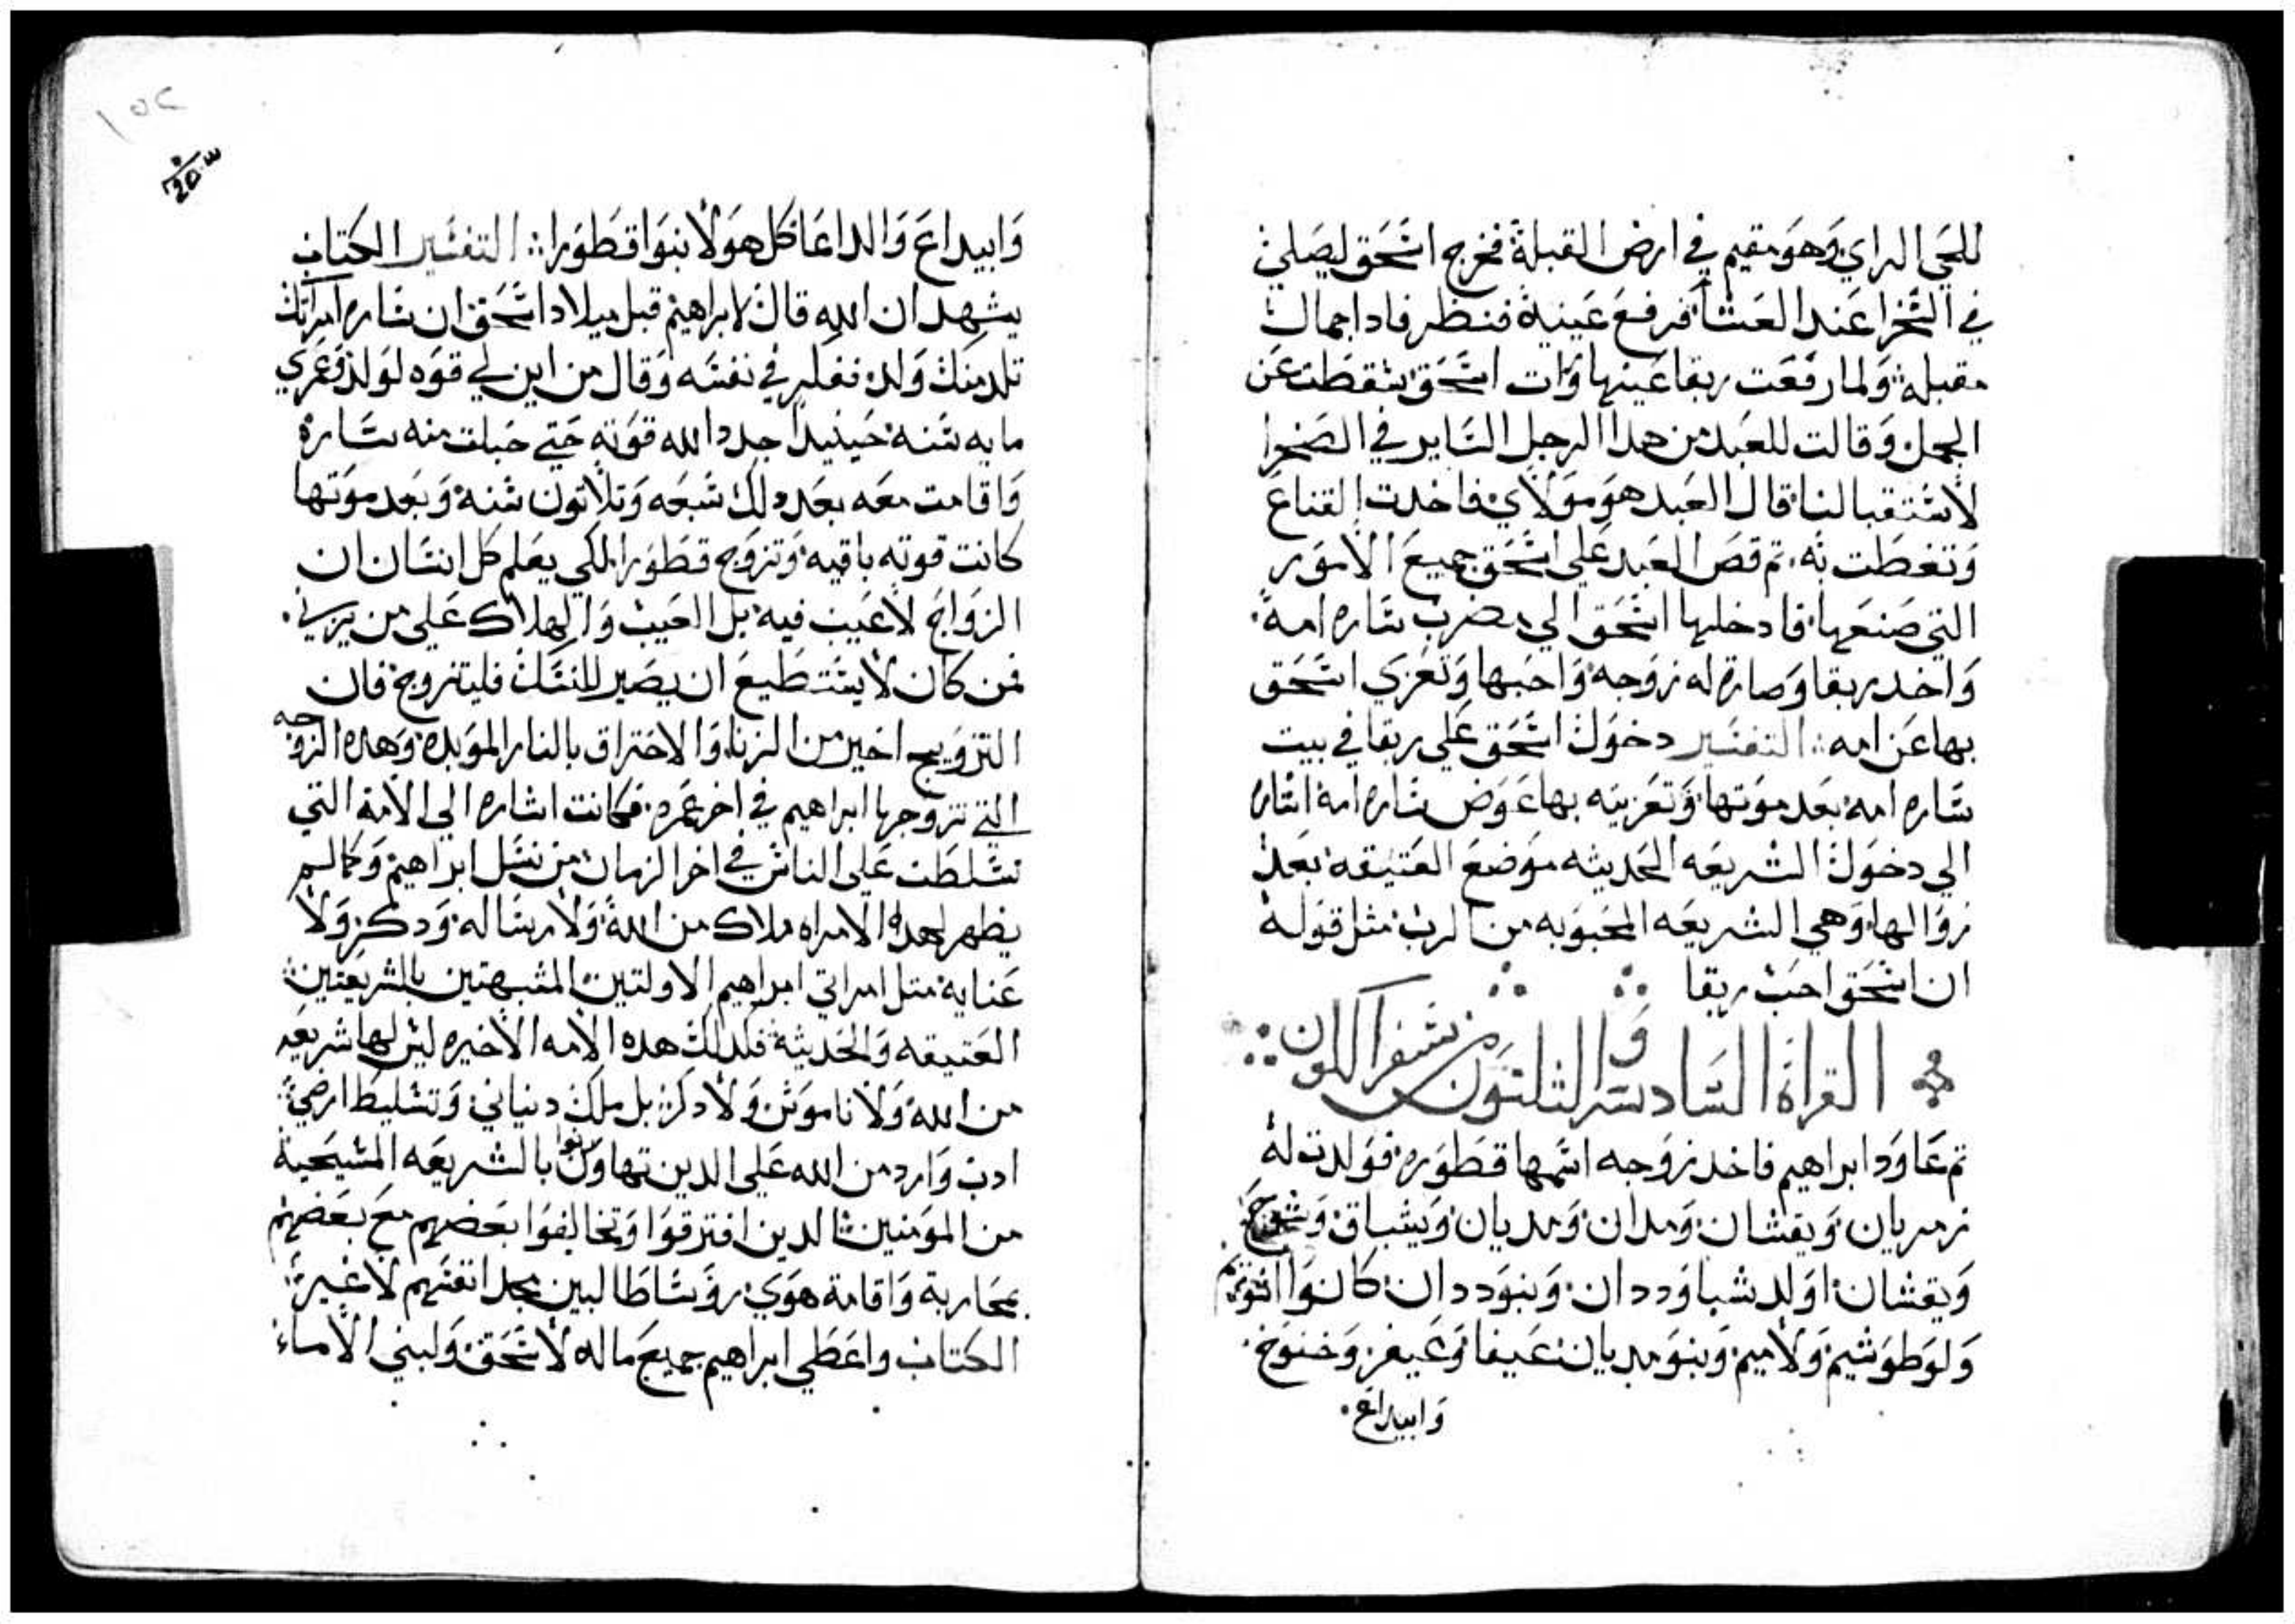 للحي الراي وهو مقيم في ارض القبلة فخرج اسحق ليصلي
في الصحرا عند العشا فرفع عينية فنظر فاداجمال
مقبله ولما رفعت ربقا عينها وات اسحق سقطت عن
الجمل وقالت للعبد من هدا الرجل الساير في الصحرا
لاستقبالنا قال العبد هو مولاي فاخدت القناع
وتغطت به تم قص العبد علي اسحق جميع الامور
التي صنعها فادخلها اسحق الي مضرب ساره امه
واخد ربقا وصارة له زوجه واحبها وتعزي اسحق
بها عن امه التفسير دخول اسحق علي ربقا في بيت
ساره امه بعد موتها وتعزيته بها عوض ساره امه اشارة
الي دخول الشريعه الحديثه موضع العتيقه بعد
زوالها وهي الشريعه المحبوبه من الرب مثل قوله
ان اسحق احب ربقا
القراة السادسه والثلثون من سفر اللون
تم عاود ابراهيم فاخد زوجه اسمها قطوره فولدت له
زمريان ويقشان ومدان ومديان ويشباق وشوح
ويقشان اولد شبا وددان وبنو ددان كانوا اشوريم
ولوطوشيم ولاميم وبنو مديان عيفا وعيفر وخنوخ
وابيداع
١٥٢
وابيداع والداعا كل هولا بنوا قطورا التفسير الكتاب
يشهد ان الله قال لابراهيم قبل ميلاد اسحق ان ساره امراتك
تلد منك ولد ففكر في نفسه وقال من اين لي قوه لولد وعمري
مايه سنه حينيدا جدد الله قوته حتي حبلت منه ساره
واقامت معه بعد دلك سبعه وتلاتون سنه وبعد موتها
كانت قوته باقيه وتزوج قطورا لكي يعلم كل انسان ان
الزواج لا عيب فيه بل العيب والهلاك علي من يزني
فمن كان لا يستطيع ان يصير للنسك فليتزوج فان
التزويج اخير من الزناء والاحتراق بالنار الموبده وهده الزوجه
التي تزوجها ابراهيم في اخر عمره فكانت اشاره الي الامة التي
تسلطت علي الناس في اخر الزمان من نسل ابراهيم وكما لم
يظهر لهده الامراه ملاك من الله ولا رساله ودكر ولا
عناية متل امراتي ابراهيم الاولتين المشبهتين بالشريعتين
العتيقه والحديثة فكدلك هده الامه الاخيره ليس لها شريعه
من الله ولا ناموس ولا دكر بل ملك دنياني وتسليط ارضي
ادب وارد من الله علي الدين تهاونوا بالشريعه المسيحية
من المومنين الدين افترقوا وتخالفوا بعضهم مع بعضهم
بمحاربة واقامة هوي روسا طالبين مجد انفسهم لا غير
الكتاب واعطي ابراهيم جميع ماله لاسحق ولبني الاماء